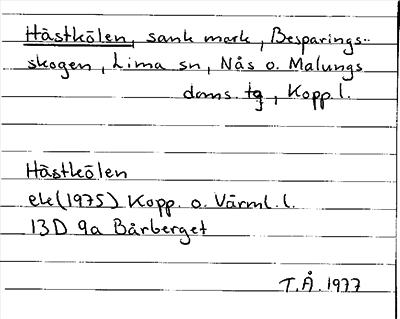 Hästkölen, sank mark, Besparings-
skogen, Lima sn, Nås o. Malungs
doms. tg, Kopp. l.
Hästkölen
ek (1975) Kopp. o. Värml. l.
13D 9a Bårberget
T.Å. 1977